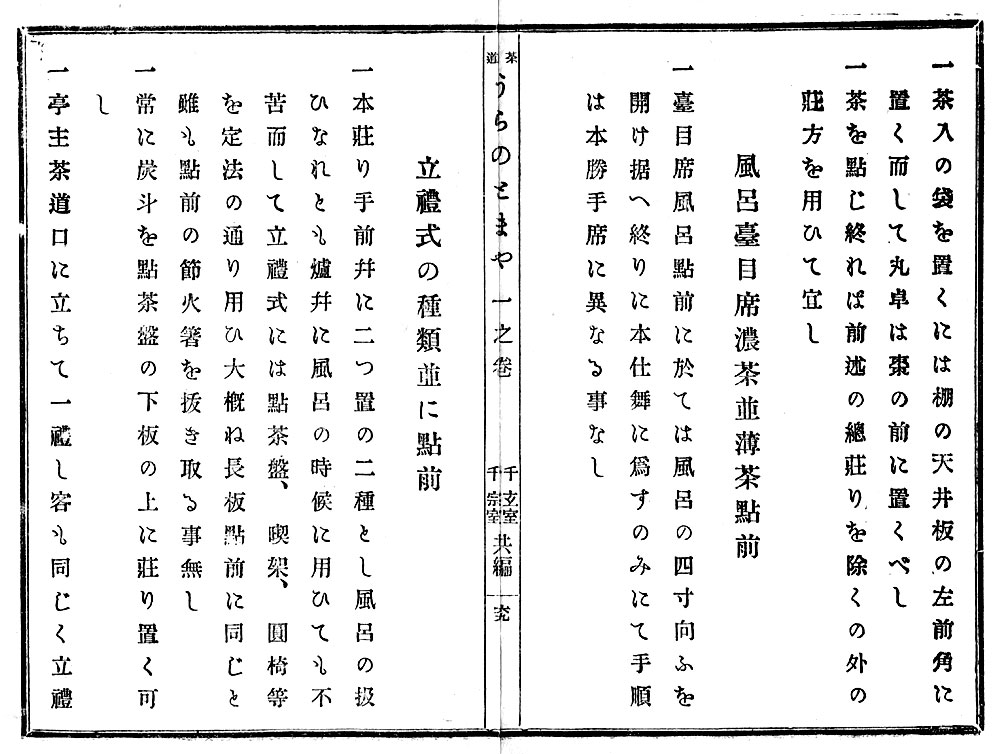 一茶入の袋を置くには棚の天井板の左前角に
置く而して丸卓は棗の前に置くべし
一茶を點じ終れば前述の總莊りを除くの外の
莊方を用ひて宜し
風呂臺目席濃茶並薄茶點前
一臺目席風呂點前に於ては風呂の四寸向ふを
開け据へ終りに本仕舞に爲すのみにて手順
は本勝手席に異なる事なし
茶道うらのとまや一之卷
千玄室
千宗室
共編
立禮式の種類並に點前
一本莊り手前幷に二つ置の二種とし風呂の扱
ひなれとも爐幷に風呂の時候に用ひても不
苦而して立禮式には點茶盤、喫架、圓椅等
を定法の通り用ひ大槪ね長板點前に同じと
雖も點前の節火箸を拔き取る事無し
一常に炭斗を點茶盤の下板の上に莊り置く可
し
一亭主茶道口に立ちて一禮し客も同じく立禮